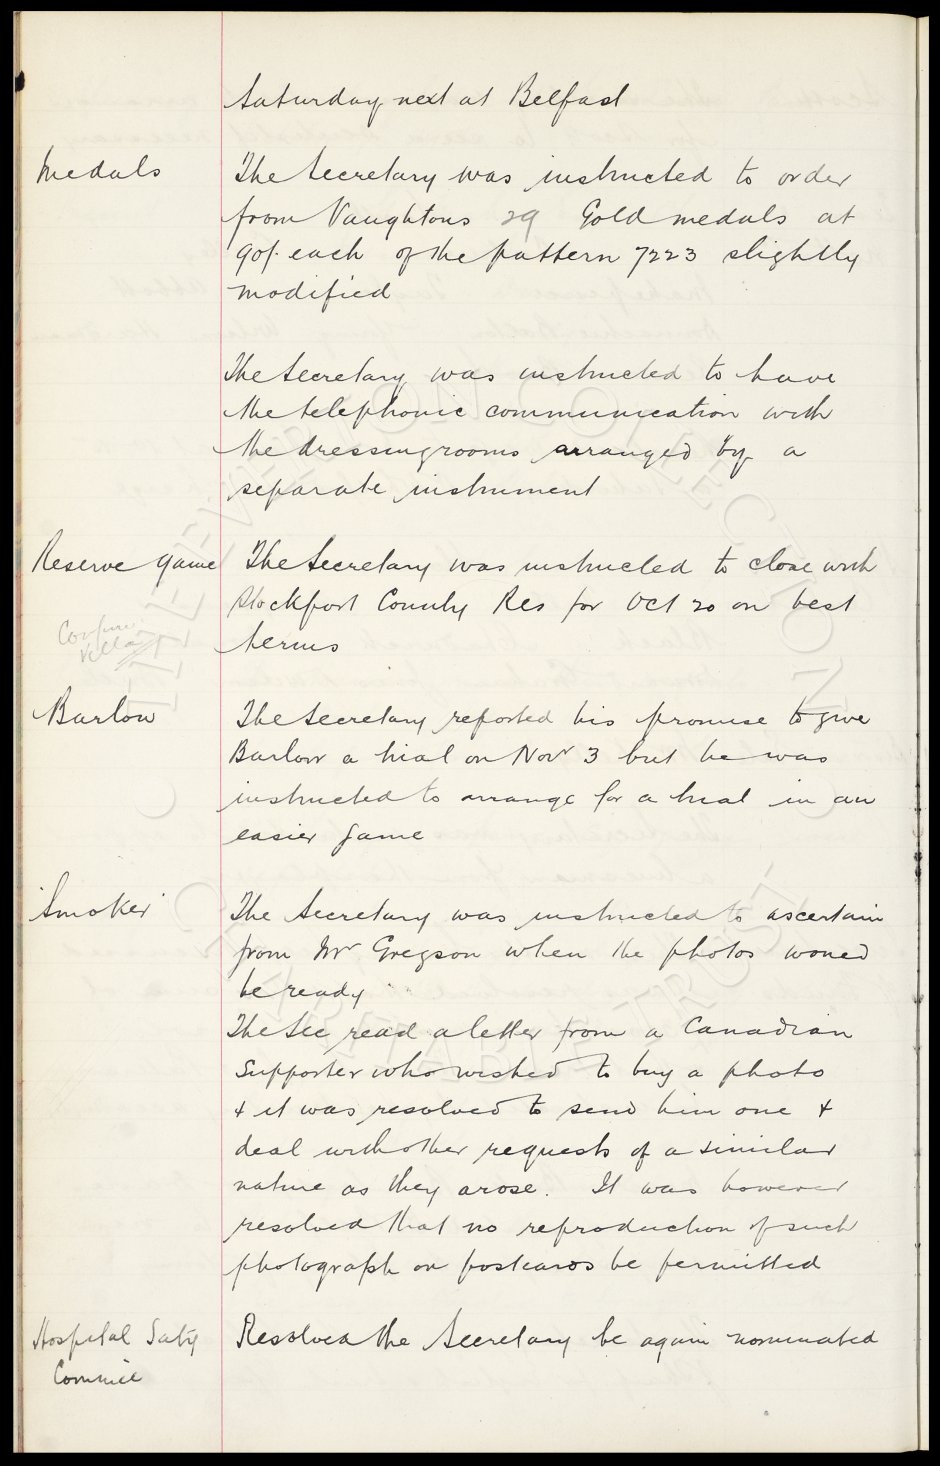 Saturday next at Belfast
Medals
The Secretary was instructed to order
from Vaughtons 29 Gold medals at
90/- each of the pattern 7223 slightly
modified
The Secretary was instructed to have
the telephonic communication with
the dressingrooms arranged by a
separate instrument
Reserve game
The Secretary was instructed to close with
Stockport County Res for Oct 20 on best
terms
Villa
Barlow
The Secretary reported his promise to give
Barlow a trial on Nov 3 but he was
instructed to arrange for a trial in an
easier game
'Smoker'
The Secretary was instructed to ascertain
from Mr Gregson when the photos would
be ready
The Sec read a letter from a Canadian
Supporter who wished to buy a photo
& it was resolved to send him one &
deal with other requests of a similar
nature as they arose. It was however
resolved that no reproduction of such
photograph on postcards be permitted
Hospital Saty
Commee
Resolved the Secretary be again nominated